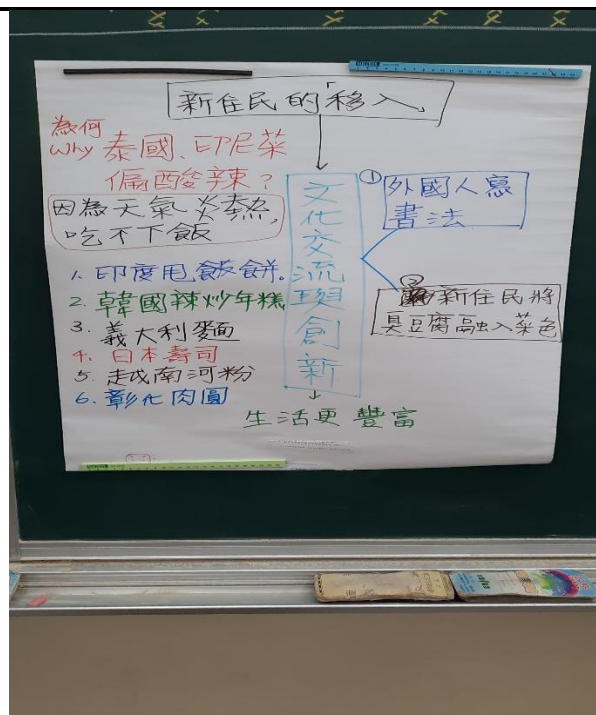 新住民的「移入」
為何
Why 泰國、印尼菜
偏酸辣?
因為天氣炎熱,
吃不下飯
1. 印度甩飯餅。
2. 韓國辣炒年糕
3. 義大利麵
4. 日本壽司
5. 越南河粉
6. 彰化肉圓
文化交流與創新
① 外國人寫
書法
② 新住民將
臭豆腐融入菜色
生活更豐富